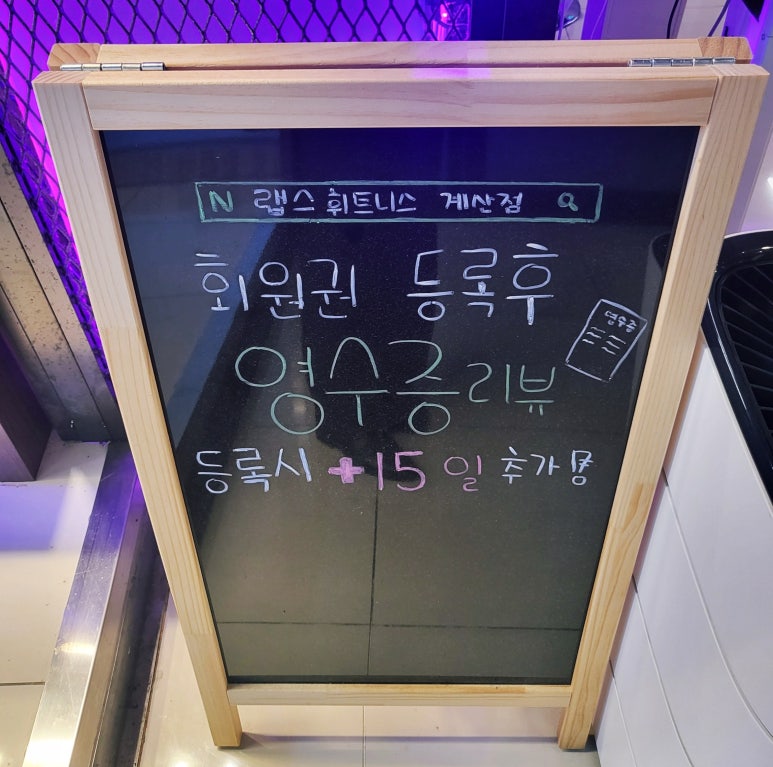 N 랩스휘트니스 계산점
회원권 등록후
영수증리뷰
영수증
등록시 +15일 추가